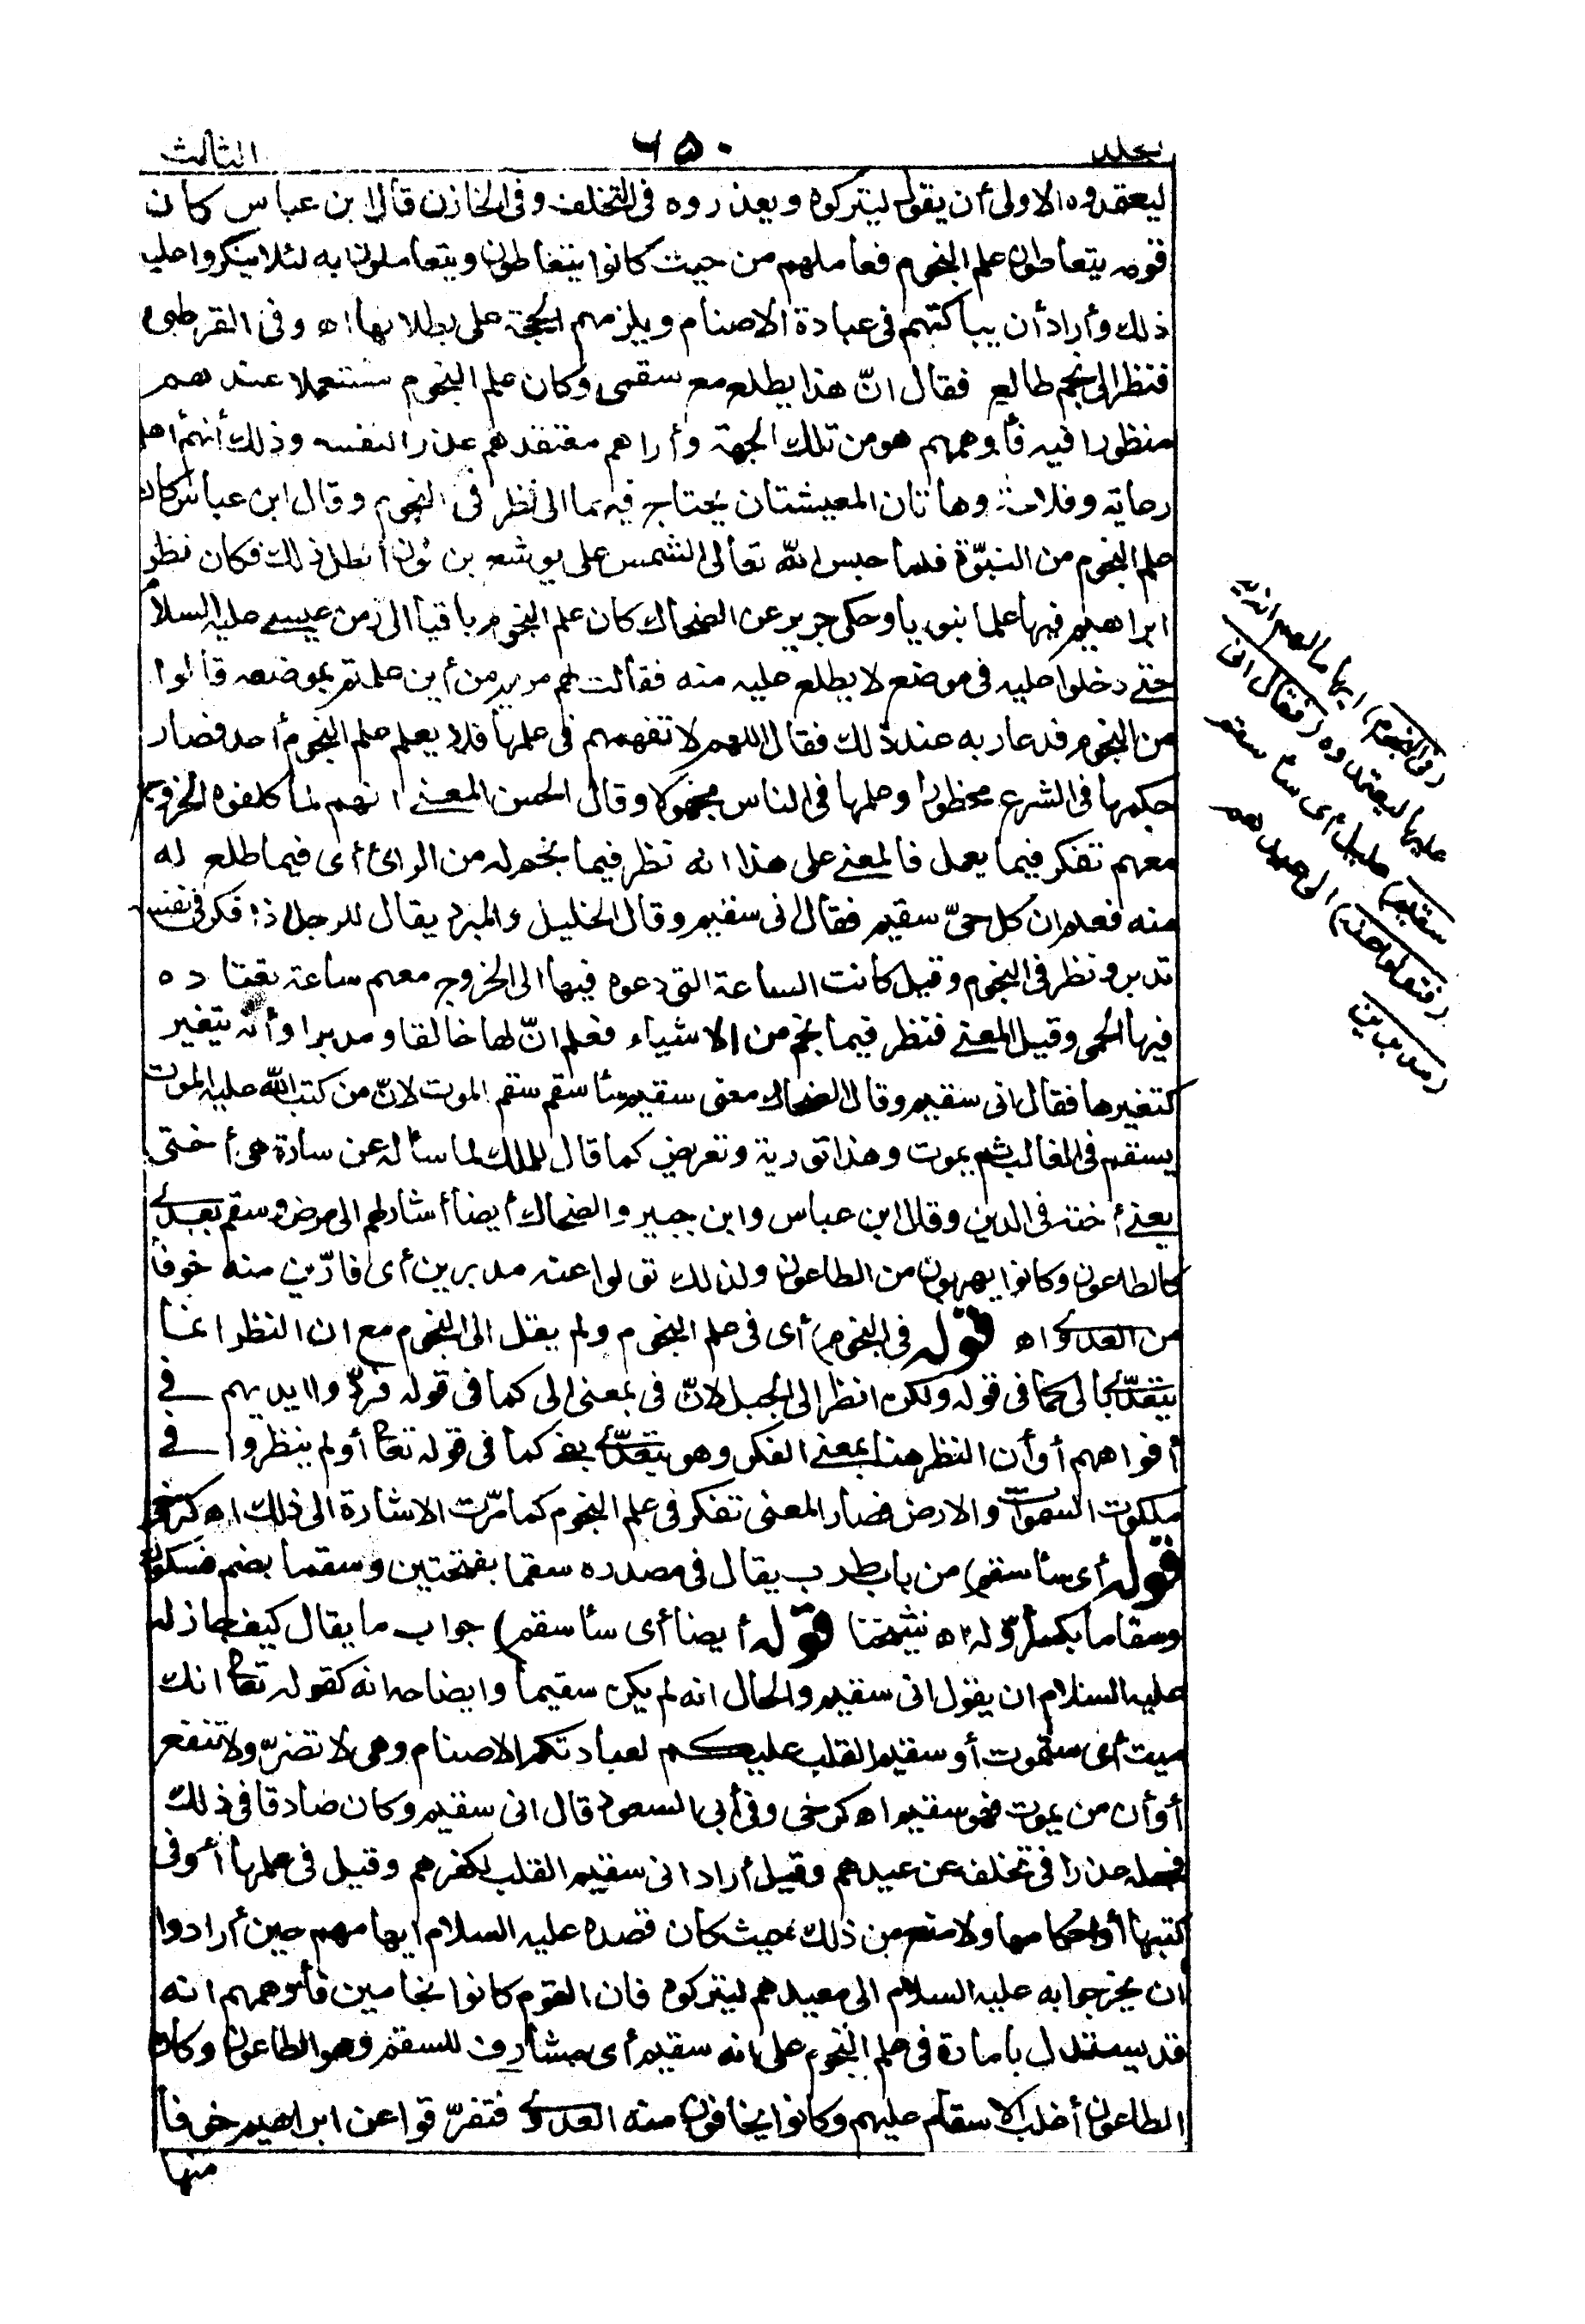 مجلد ٦٥٠ الثالث
ليعتقدوه الاولى أن يقول ليتركوه ويعذروه فى التخلف وفى الخازن قال ابن عباس كان
قومه يتعاطون علم النجوم فعاملهم من حيث كانوا يتعاطون ويتعاملون به لئلا ينكروا عليه
ذلك وأراد أن يباكتهم فى عبادة الاصنام ويلزمهم الحجة على بطلانها اه وفى القرطبى
فنظر الى نجم طالع فقال انّ هذا يطلع مع سقمى وكان علم النجوم مستعملا عندهم
منظورا فيه فأوهمهم هو من تلك الجهة وأراهم معتقدهم عذرا لنفسه وذلك أنهم أهل
رعاية وفلاحة وهاتان المعيشتان يحتاج فيهما الى نظر فى النجوم وقال ابن عباس كان
علم النجوم من النبوّة فلما حبس الله تعالى الشمس على يوشع بن نون أبطل ذلك فكان نظر
ابراهيم فيها علما نبويا وحكى جرير عن الضحاك كان علم النجوم باقيا الى زمن عيسى عليه السلام
حتى دخلوا عليه فى موضع لا يطلع عليه منه فقالت لهم مريم من أين علمتم بموضعه قالوا
من النجوم فدعا ربه عند ذلك فقال اللهم لا تفهمهم فى علمها فلا يعلم علم النجوم أحد فصار
حكمها فى الشرع محظورا وعلمها فى الناس مجهولا وقال الحسن المعنى انهم لما كلفوه الخروج
معهم تفكر فيما يعمل فالمعنى على هذا انه نظر فيما نجم له من الرأى أى فيما طلع له
منه فعلم ان كل حىّ سقيم فقال انى سقيم وقال الخليل والمبرد يقال للرجل اذا فكر فى نفسه
تدبر ونظر فى النجوم وقيل كانت الساعة التى دعوه فيها الى الخروج معهم ساعة تعتاده
فيها الحمى وقيل المعنى فنظر فيما نجم من الاشياء فعلم انّ لها خالقا ومدبرا وأنه يتغير
كتغيرها فقال انى سقيم وقال الضحاك معنى سقيم سأسقم سقم الموت لانّ من كتب الله عليه الموت
يسقم فى الغالب ثم يموت وهذا تورية وتعريض كما قال للملك لما سأله عن سارة هى أختى
يعنى أخته فى الدين وقال ابن عباس وابن جبير والضحاك أيضا أشار لهم الى مرض وسقم يعدى
كالطاعون وكانوا يهربون من الطاعون ولذلك تولوا عنه مدبرين أى فارّين منه خوفا
من العدوى اه قوله فى النجوم) أى فى علم النجوم ولم يقل الى النجوم مع ان النظر انما
يتعدّى بالى كما فى قوله ولكن انظر الى الجبل لانّ فى بمعنى الى كما فى قوله فردّوا أيديهم فى
أفواههم أو أن النظر هنا بمعنى الفكر وهو يتعدّى بفى كما فى قوله تعالى أولم ينظروا فى
ملكوت السموات والارض فصار المعنى تفكر فى علم النجوم كما مرّت الاشارة الى ذلك اه كرخى
قوله أى سأسقم) من باب طرب يقال فى مصدره سقما بفتحتين وسقما بضم فسكون
وسقاما بكسر أوّله اه شيخنا قوله أيضا أى سأسقم) جواب ما يقال كيف جاز له
عليه السلام ان يقول انى سقيم والحال انه لم يكن سقيما وايضاحه انه كقوله تعالى انك
ميت أى ستموت أو سقيم القلب عليكم لعبادتكم الاصنام وهى لا تضرّ ولا تنفع
أو أن من يموت فهو سقيم اه كرخى وفى أبى السعود قال انى سقيم وكان صادقا فى ذلك
فجعله عذرا فى تخلفه عن عيدهم وقيل أراد انى سقيم القلب لكفركم وقيل فى علمها أو فى
كتبها أو أحكامها ولا منع من ذلك بحيث كان قصده عليه السلام ايهامهم حين أرادوا
ان يخرجوا به عليه السلام الى معيدهم ليتركوه فان القوم كانوا نجامين فأوهمهم انه
قد استدل بأمارة فى علم النجوم على انه سقيم أى مشارف للسقم وهو الطاعون وكان
الطاعون أغلب الاسقام عليهم وكانوا يخافون منه العدوى فتفرّقوا عن ابراهيم خوفا
منها
(فى النجوم) ايهاما لهم انه يعتمد
عليها ليعتمدوه (فقال انى
سقيم) عليل أى سأسقم
(فتولوا عنه) الى عيدهم
(مدبرين